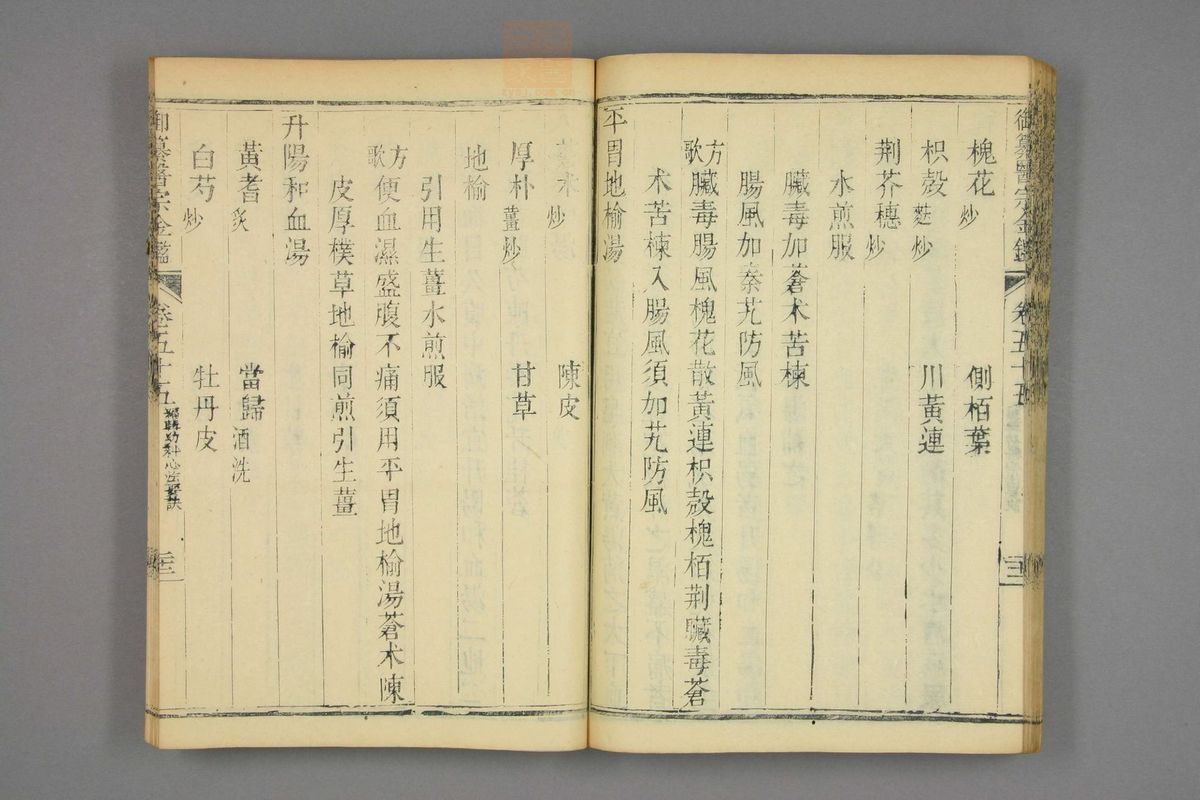 御纂醫宗金鑑 卷五十五 三
槐花炒 側栢葉
枳殼麩炒 川黃連
荆芥穗炒
水煎服
臟毒加蒼朮苦楝
腸風加秦艽防風
方歌 臟毒腸風槐花散黃連枳殼槐栢荆臟毒蒼
朮苦楝入腸風須加艽防風
平胃地榆湯
蒼朮炒 陳皮
厚朴薑炒 甘草
地榆
引用生薑水煎服
方歌 便血濕盛腹不痛須用平胃地榆湯蒼朮陳
皮厚樸草地榆同煎引生薑
升陽和血湯
黃耆炙 當歸酒洗
白芍炒 牡丹皮
御纂醫宗金鑑 卷五十五 編輯幼科心法要訣